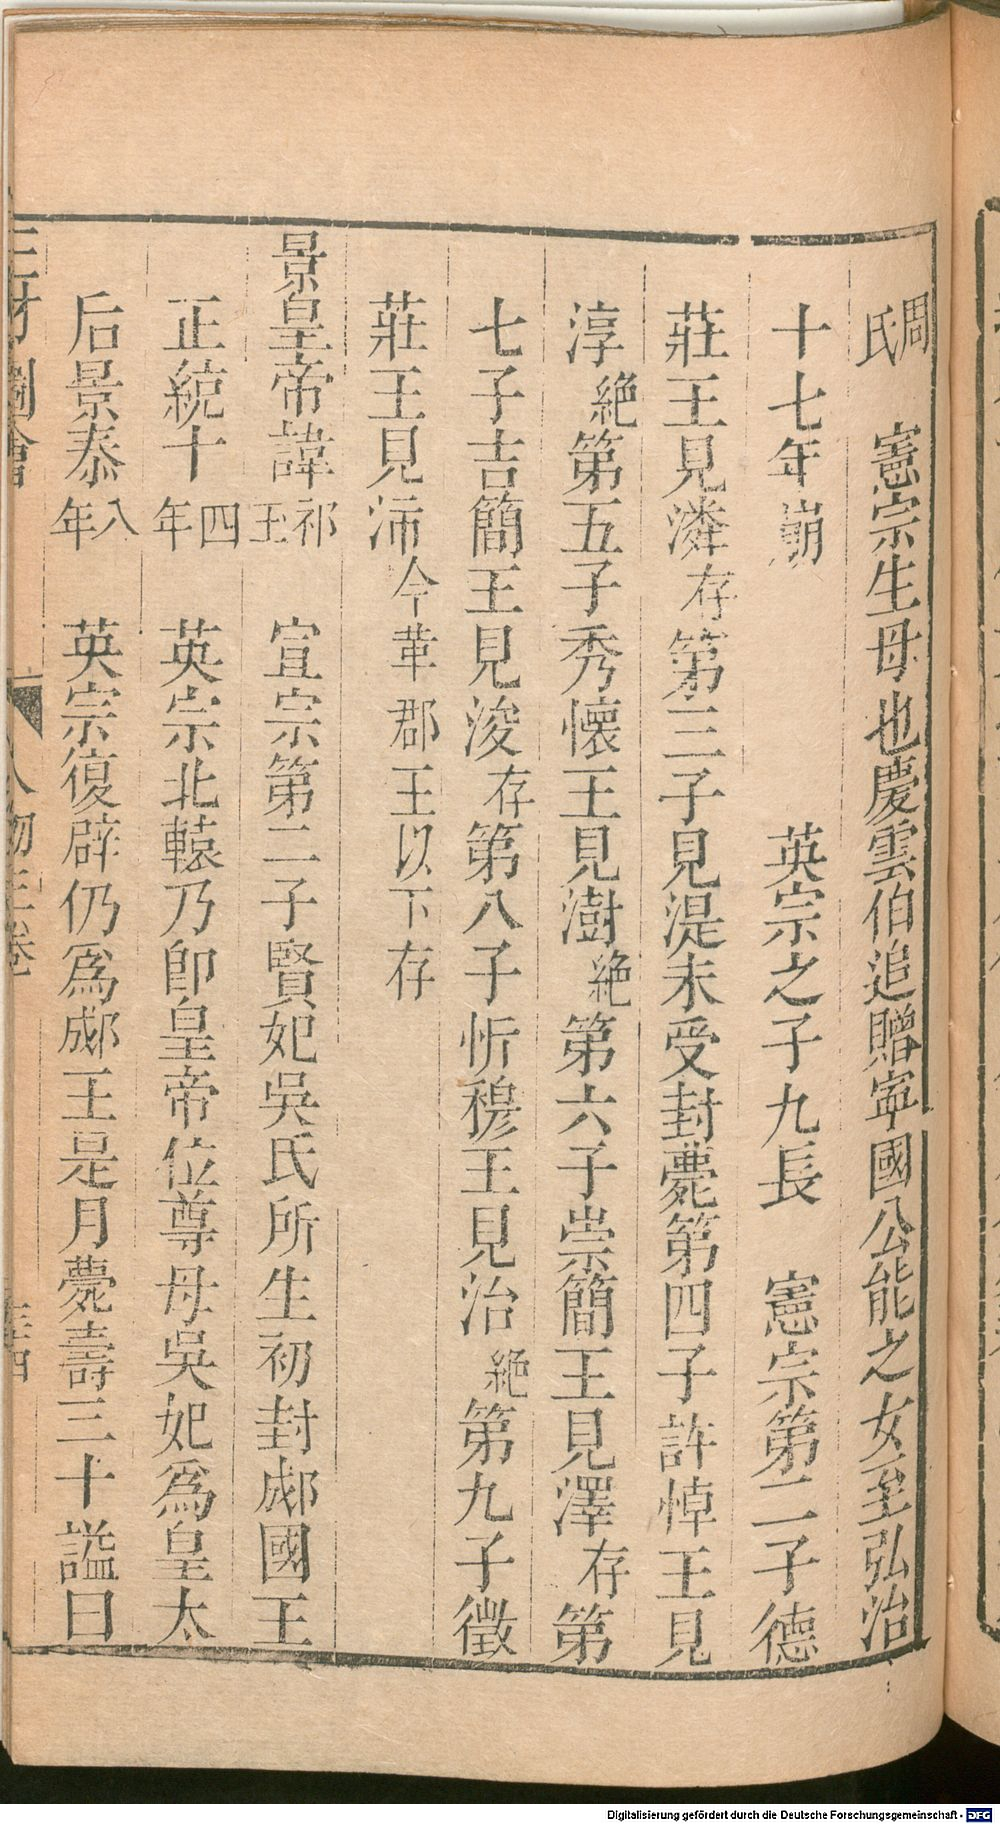 周氏　憲宗生母也慶雲伯追贈寧國公能之女至弘治
十七年崩　英宗之子九長　憲宗第二子德
莊王見潾存第三子見湜未受封薨第四子許悼王見
淳絶第五子秀懷王見澍絶第六子崇簡王見澤存第
七子吉簡王見浚存第八子忻穆王見治絶第九子徽
莊王見沛今革郡王以下存
景皇帝諱祁玉　宣宗第二子賢妃吳氏所生初封郕國王
正統十四年　英宗北轅乃卽皇帝位尊母吳妃爲皇太
后景泰八年　英宗復辟仍爲郕王是月薨壽三十謚曰
三才圖會　人物三卷　三十四
Digitalisierung gefördert durch die Deutsche Forschungsgemeinschaft - DFG